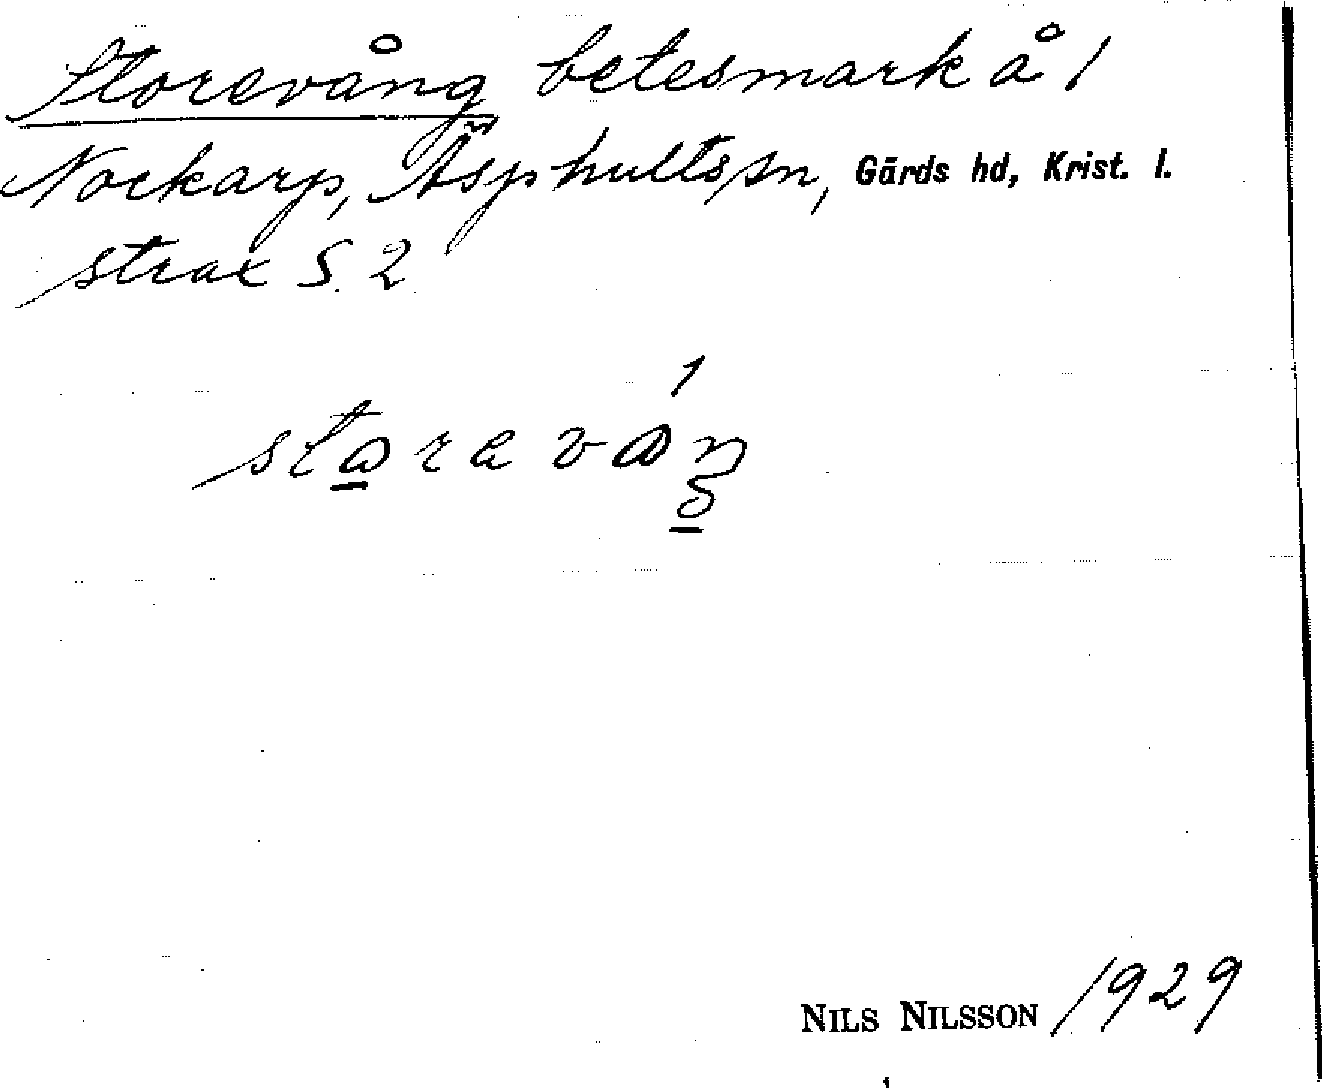 Storevång betesmark å 1
Nockarp, Äsphults sn, Gärds hd, Krist. l.
strax S. 2
1
NILS NILSSON 1929